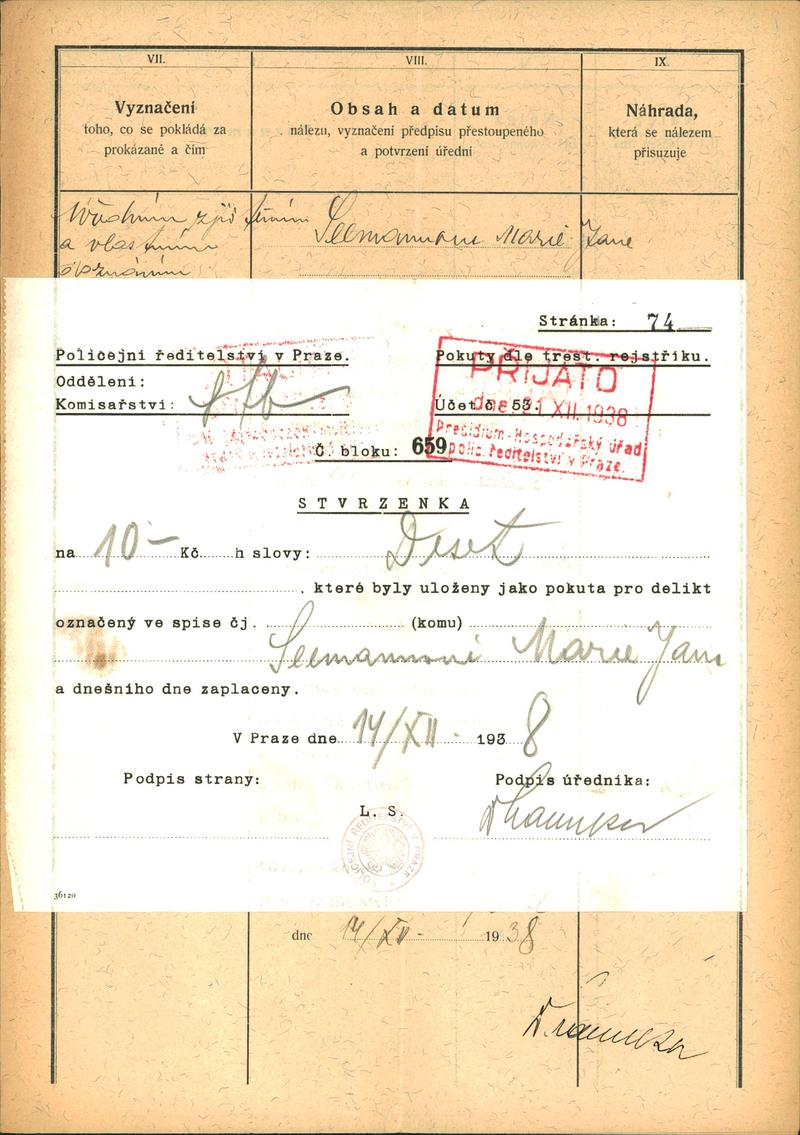 VII.
VIII.
IX.
Vyznačení
toho, co se pokládá za
prokázané a čím
Obsah a datum
nálezu, vyznačení předpisu přestoupeného
a potvrzení úřední
Náhrada,
která se nálezem
přisuzuje
a vlastním
Seemannová Marie Jane
Stránka: 74
Policejní ředitelství v Praze.
Pokuty dle trest. rejstříku.
Oddělení:
PŘIJATO
Komisařství:
Účet č. 53.
dne 21 XII. 1938
Presidium-Hospodářský úřad
Č. bloku: 659
polic. ředitelství v Praze.
STVRZENKA
na 10 — Kč h slovy: Deset
, které byly uloženy jako pokuta pro delikt
označený ve spise čj. (komu)
Seemannové Marie Jane
a dnešního dne zaplaceny.
V Praze dne 14/XII. 1938
Podpis strany:
Podpis úředníka:
L. S.
POLICEJNÍ ŘEDITELSTVÍ V PRAZE
36120
dne 14/XII 1938